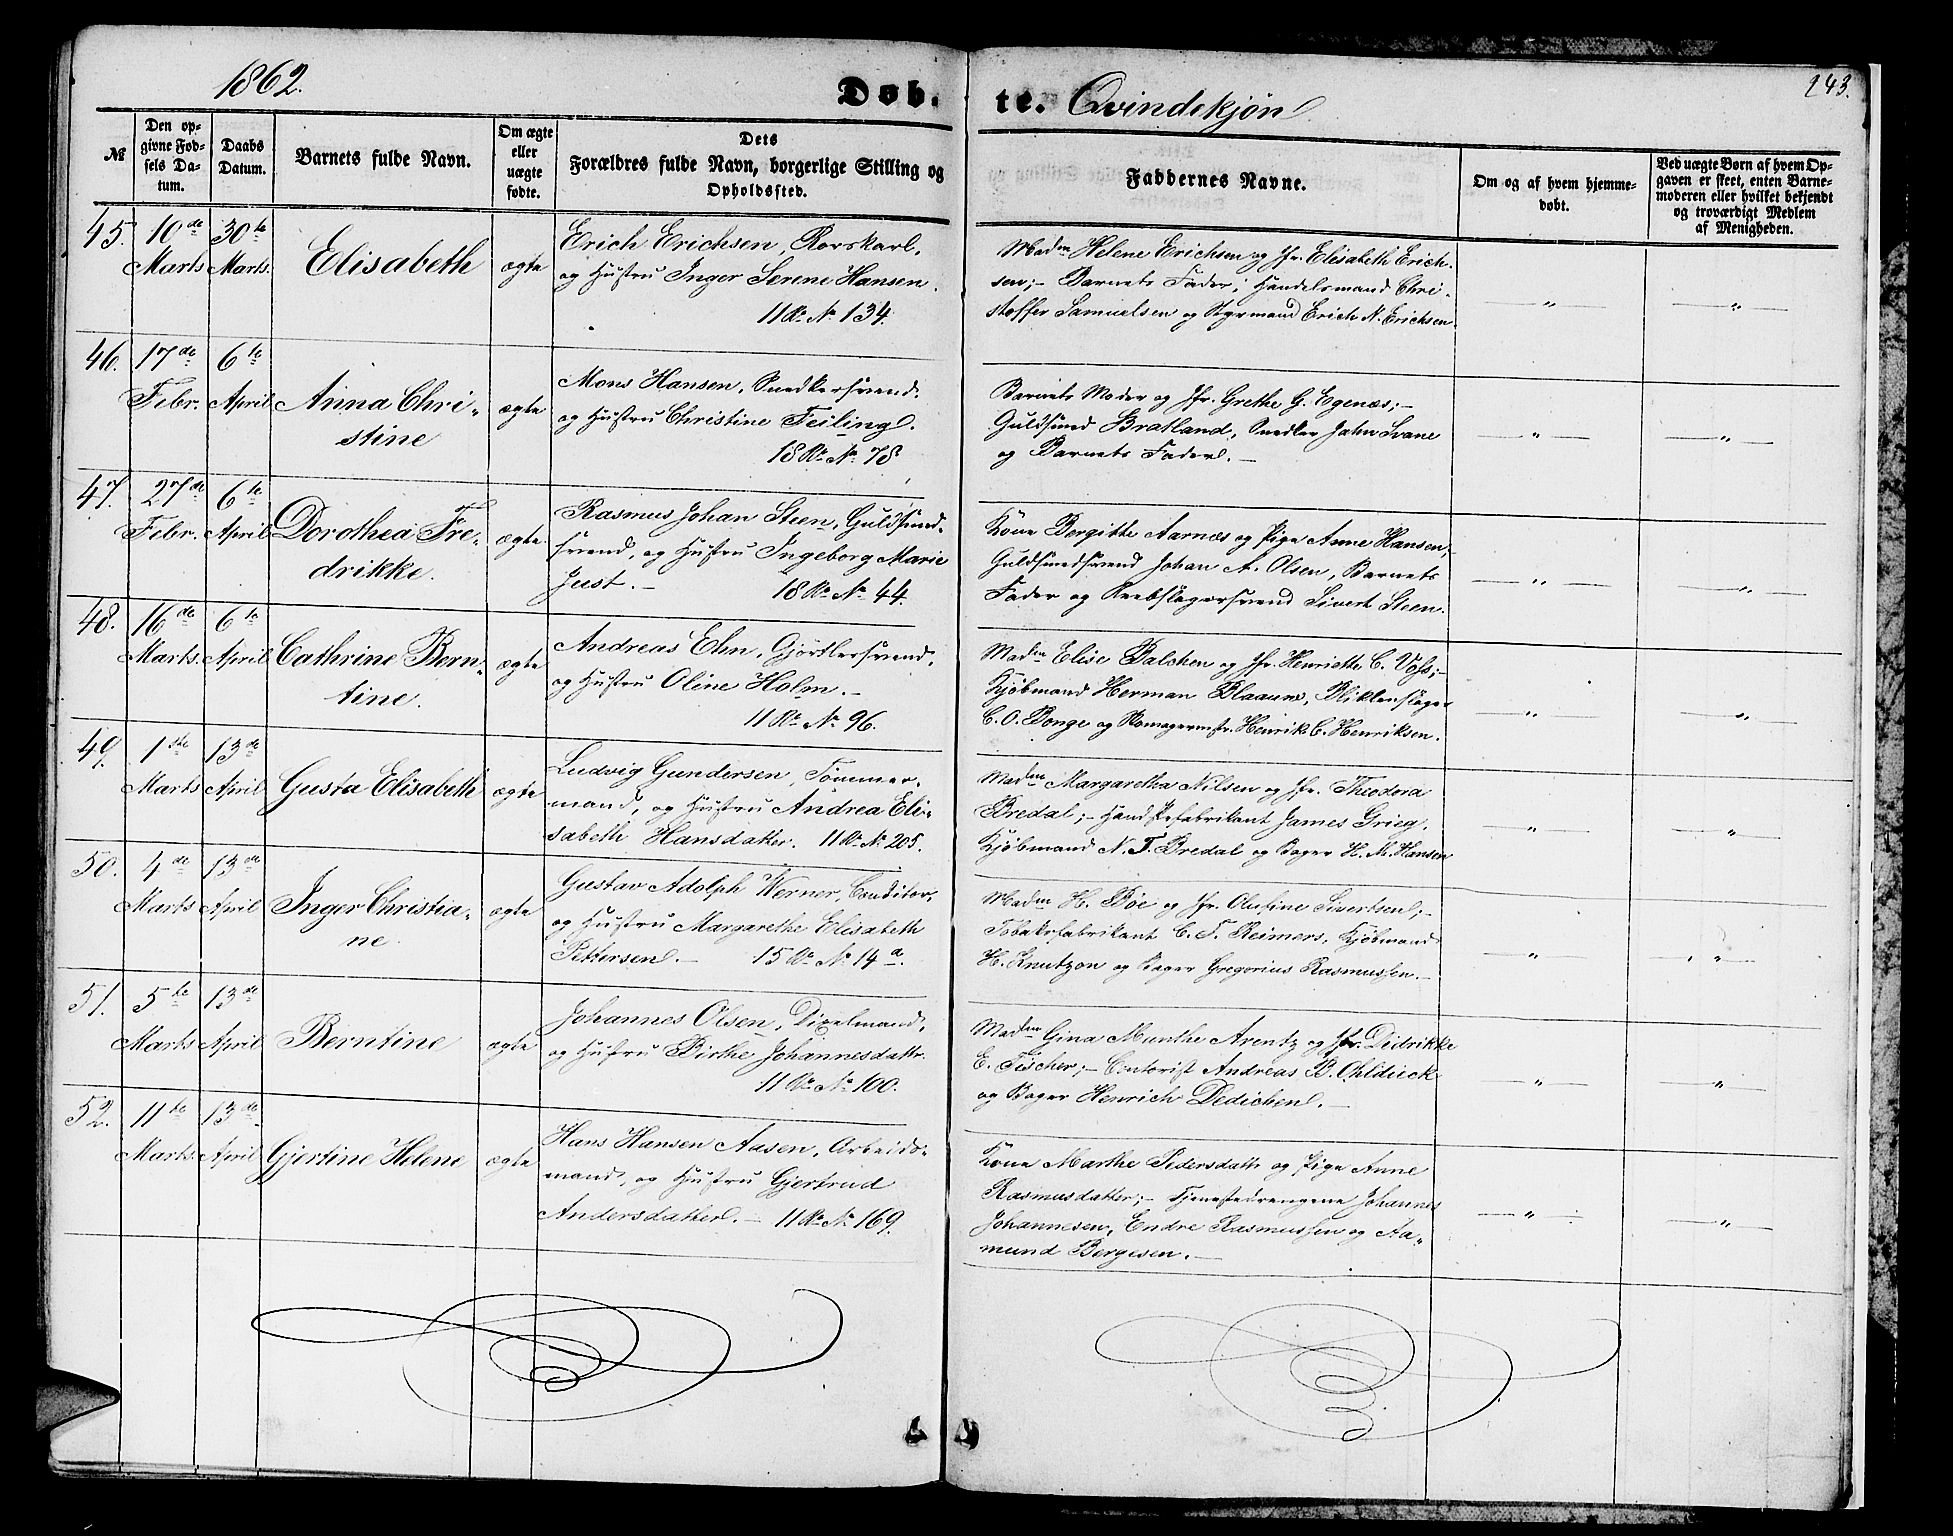 1862.
Døb-
te. Qvindekjøn
243.
№
Den op-
givne Fød-
sels Da-
tum.
Daabs
Datum.
Barnets fulde Navn.
Om ægte
eller
uægte
fødte.
Dets
Forældres fulde Navn, borgerlige Stilling og
Opholdssted.
Faddernes Navne.
Om og af hvem hjemme-
døbt.
Ved uægte Børn af hvem Op-
gaven er skeet, enten Barne-
moderen eller hvilket bekjendt
og troværdigt Medlem
af Menigheden.
45. 10de Marts 30te Marts.
Elisabeth
ægte
Erich Erichsen, Rorskarl,
og Hustru Inger Serene Hansen.
11 Ro. No. 134.
Madm Helene Erichsen og Jfr. Elisabeth Erich-
sen; – Barnets Fader, Handelsmand Chri-
stoffer Samuelsen og Styrmand Erich N. Erichsen.
— „ —
— „ —
46. 17de Febr. 6te April
Anna Chri-
stine
ægte
Mons Hansen, Snedkersvend.
og Hustru Christine Feiling.
18 Ro. No. 78
Barnets Moder og Jfr. Grethe G. Egenæs; –
Guldsmed Bratland, Snedker Jahn Svane
og Barnets Fader. –
— „ —
— „ —
47. 27de Febr. 6te April
Dorothea Fre-
drikke.
ægte
Rasmus Johan Steen, Guldsmed-
svend, og Hustru Ingeborg Marie
Just. – 18 Ro. No. 44.
Kone Bergitte Aarnæs og Pige Anne Hansen; –
Guldsmedsvend Johan A. Olsen, Barnets
Fader og Reebslagersvend Sivert Steen.
— „ —
— „ —
48. 16de Marts. 6te April
Cathrine Bern-
tine.
ægte
Andreas Ehn, Gjørtlersvend,
og Hustru Oline Holm. –
11 Ro. No. 96.
Madm Elise Balchen og Jfr. Henriette C. Voss; –
Kjøbmand Herman Blaauw, Blikkenslager
C. O. Bonge og Skomagermstr. Henrik C. Henriksen.
— „ —
— „ —
49. 1ste Marts 13de April
Gusta Elisabeth
ægte
Ludvig Gundersen, Tømmer-
mand, og Hustru Andrea Eli-
sabeth Hansdatter. 11 Ro. No. 205.
Madm Margaretha Nilsen og Jfr. Theodora
Bredal; – Handskefabrikant James Grieg,
Kjøbmand N. T. Bredal og Bager H. M. Hansen
— „ —
— „ —
50. 4de Marts 13de April
Inger Christia-
ne.
ægte
Gustav Adolph Werner, Conditor,
og Hustru Margarethe Elisabeth
Pettersen. – 15 Ro. No. 14 a.
Madm H. Bøe og Jfr. Olufine Sivertsen; –
Tobaksfabrikant C. F. Reimers, Kjøbmand
H. Knutzon og Bager Gregorius Rasmussen. –
— „ —
— „ —
51. 5te Marts 13de April
Berntine
ægte
Johannes Olsen, Dixelmand,
og Hustru Birthe Johannesdattr.
11 Ro. No. 100.
Madm Gina Munthe Arentz og Jfr. Didrikke
E. Fischer; – Contorist Andreas B. Ohldieck
og Bager Henrich Dedichen. –
— „ —
— „ —
52. 11te Marts. 13de April
Gjertine Helene
ægte
Hans Hansen Aasen, Arbeids-
mand, og Hustru Gjertrud
Andersdatter. – 11 Ro. No. 169.
Kone Marthe Pedersdattr og Pige Anne
Rasmusdatter; – Tjenestedrengene Johannes
Johannesen, Endre Rasmussen og Aa-
mund Bergesen. –
— „ —
— „ —